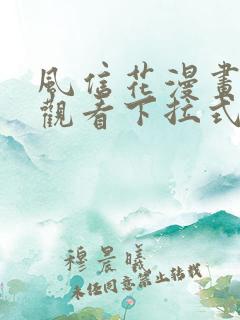 風信花漫畫
觀看下拉式
穆晨曦
未经同意禁止转载